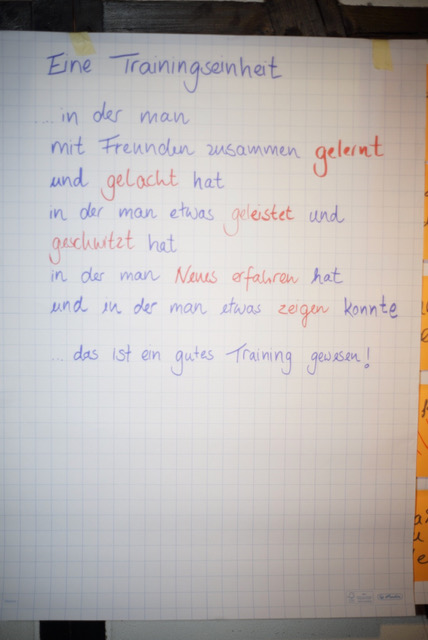 Eine Trainingseinheit
....in der man
mit Freunden zusammen gelernt
und gelacht hat
in der man etwas geleistet und
geschwitzt hat
in der man Neues erfahren hat
und in der man etwas zeigen konnte
... das ist ein gutes Training gewesen!